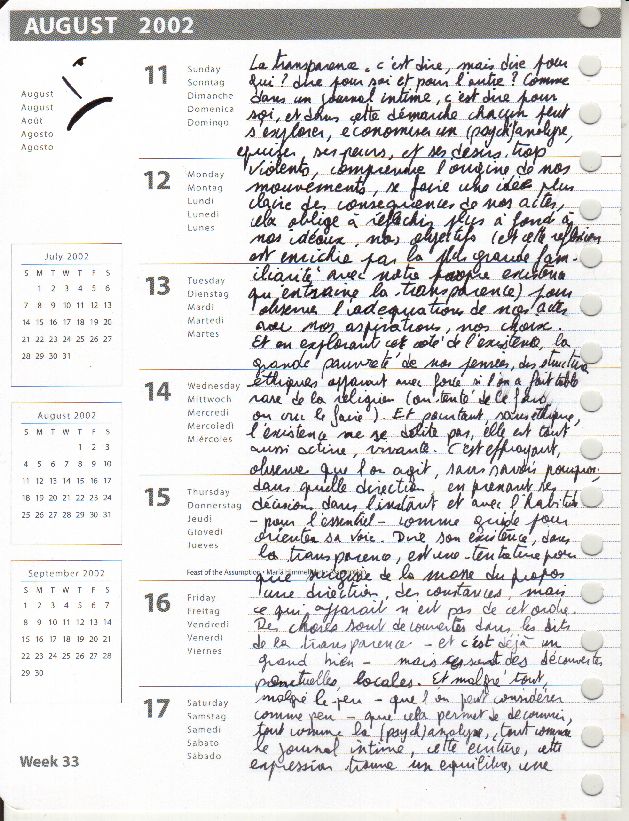 AUGUST 2002
August
August
Août
Agosto
Agosto
11 Sunday
Sonntag
Dimanche
Domenica
Domingo
12 Monday
Montag
Lundi
Lunedì
Lunes
13 Tuesday
Dienstag
Mardi
Martedì
Martes
14 Wednesday
Mittwoch
Mercredi
Mercoledì
Miércoles
15 Thursday
Donnerstag
Jeudi
Giovedì
Jueves
Feast of the Assumption
16 Friday
Freitag
Vendredi
Venerdì
Viernes
17 Saturday
Samstag
Samedi
Sabato
Sábado
July 2002
S M T W T F S
1 2 3 4 5 6
7 8 9 10 11 12 13
14 15 16 17 18 19 20
21 22 23 24 25 26 27
28 29 30 31
August 2002
S M T W T F S
1 2 3
4 5 6 7 8 9 10
11 12 13 14 15 16 17
18 19 20 21 22 23 24
25 26 27 28 29 30 31
September 2002
S M T W T F S
1 2 3 4 5 6 7
8 9 10 11 12 13 14
15 16 17 18 19 20 21
22 23 24 25 26 27 28
29 30
Week 33
La transparence, c'est dire, mais dire pour
qui? dire pour soi et pour l'autre? Comme
dans un journal intime, c'est dire pour
soi, et dans cette démarche chacun peut
s'explorer, économiser un (psych)analyse,
ses peurs, et ses désirs trop
violents, comprendre l'origine de nos
mouvements, se faire une idée plus
claire des conséquences de nos actes,
cela oblige à réfléchir plus à fond à
nos idéaux, nos objectifs (et cette réflexion
est enrichie par la plus grande fam-
iliarité avec notre propre existence
qu'entraîne la transparence) pour
observer l'adéquations de nos actes
avec nos aspirations, nos choix.
Et en explorant cet côté de l'existence, la
grande pauvreté de nos pensées, des structures
éthiques apparait avec force si l'on a fait table
rase de la religion (ou tenté de le faire,
ou cru le faire). Et pourtant, sans éthique,
l'existence ne se délite pas, elle est tout
aussi active, vivante. C'est effrayant,
observer que l'on agit, sans savoir pourquoi,
dans quelle direction en prenant ses
décisions dans l'instant et avec l'habitude
- pour l'essentiel - comme guide pour
orienter sa voie. Dire son existence, dans
la transparence, est une tentative pour
que de la masse du propos
une direction, des constances, mais
ce qui apparait n'est pas de cet ordre.
Des choses sont découvertes dans les dits
de la transparence - et c'est déjà un
grand bien - mais ce sont des découvertes
ponctuelles, locales. Et malgré tout,
malgré le peu - que l'on peut considérer
comme peu - que cela permet de découvrir,
tout comme la (psych)analyse, tout comme
le journal intime, cette écriture, cette
expression trouve un équilibre, une